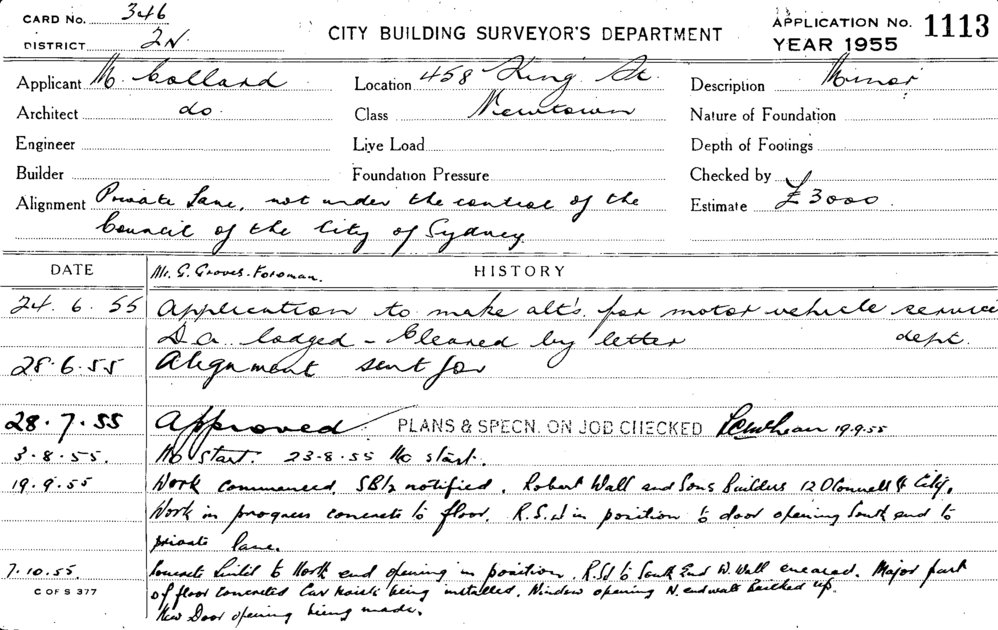 CARD No. 346
DISTRICT 2N
CITY BUILDING SURVEYOR'S DEPARTMENT
APPLICATION No. 1113
YEAR 1955
Applicant M. Collard Location 458 King St. Description Minor
Architect do. Class Newtown Nature of Foundation
Engineer Live Load Depth of Footings
Builder Foundation Pressure Checked by
Alignment Private Lane, not under the control of the Estimate £3000
Council of the City of Sydney
DATE Mr. G. Groves. Foreman. HISTORY
24.6.55 Application to make alt's. for motor vehicle service
D.a. lodged - Cleared by letter dept.
28.6.55 Alignment sent for
28.7.55 Approved. PLANS & SPECN. ON JOB CHECKED 19.9.55
3.8.55. No Start. 23.8.55 No start.
19.9.55 Work commenced. SB/2 notified. Robert Wall and Sons Builders 12 O'Connell St City.
Work in progress concrete to floor. R.S.J in position to door opening South end to
private lane.
7.10.55. Concrete lintel to North end opening in position. R.SJ to South End W. Wall encased. Major part
C OF S 377 of floor concreted Car hoist being installed. Window opening N. end wall bricked up.
New Door opening being made.